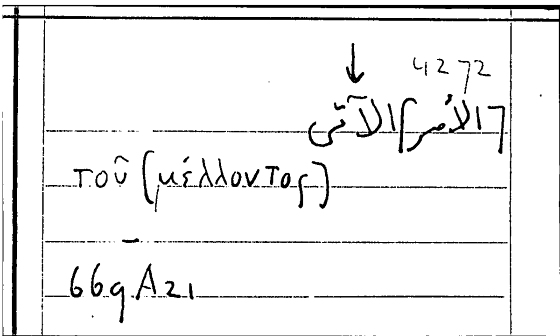 ↓ 4272
[الأمر] الآتى
τοῦ (μέλλοντος)
669A21